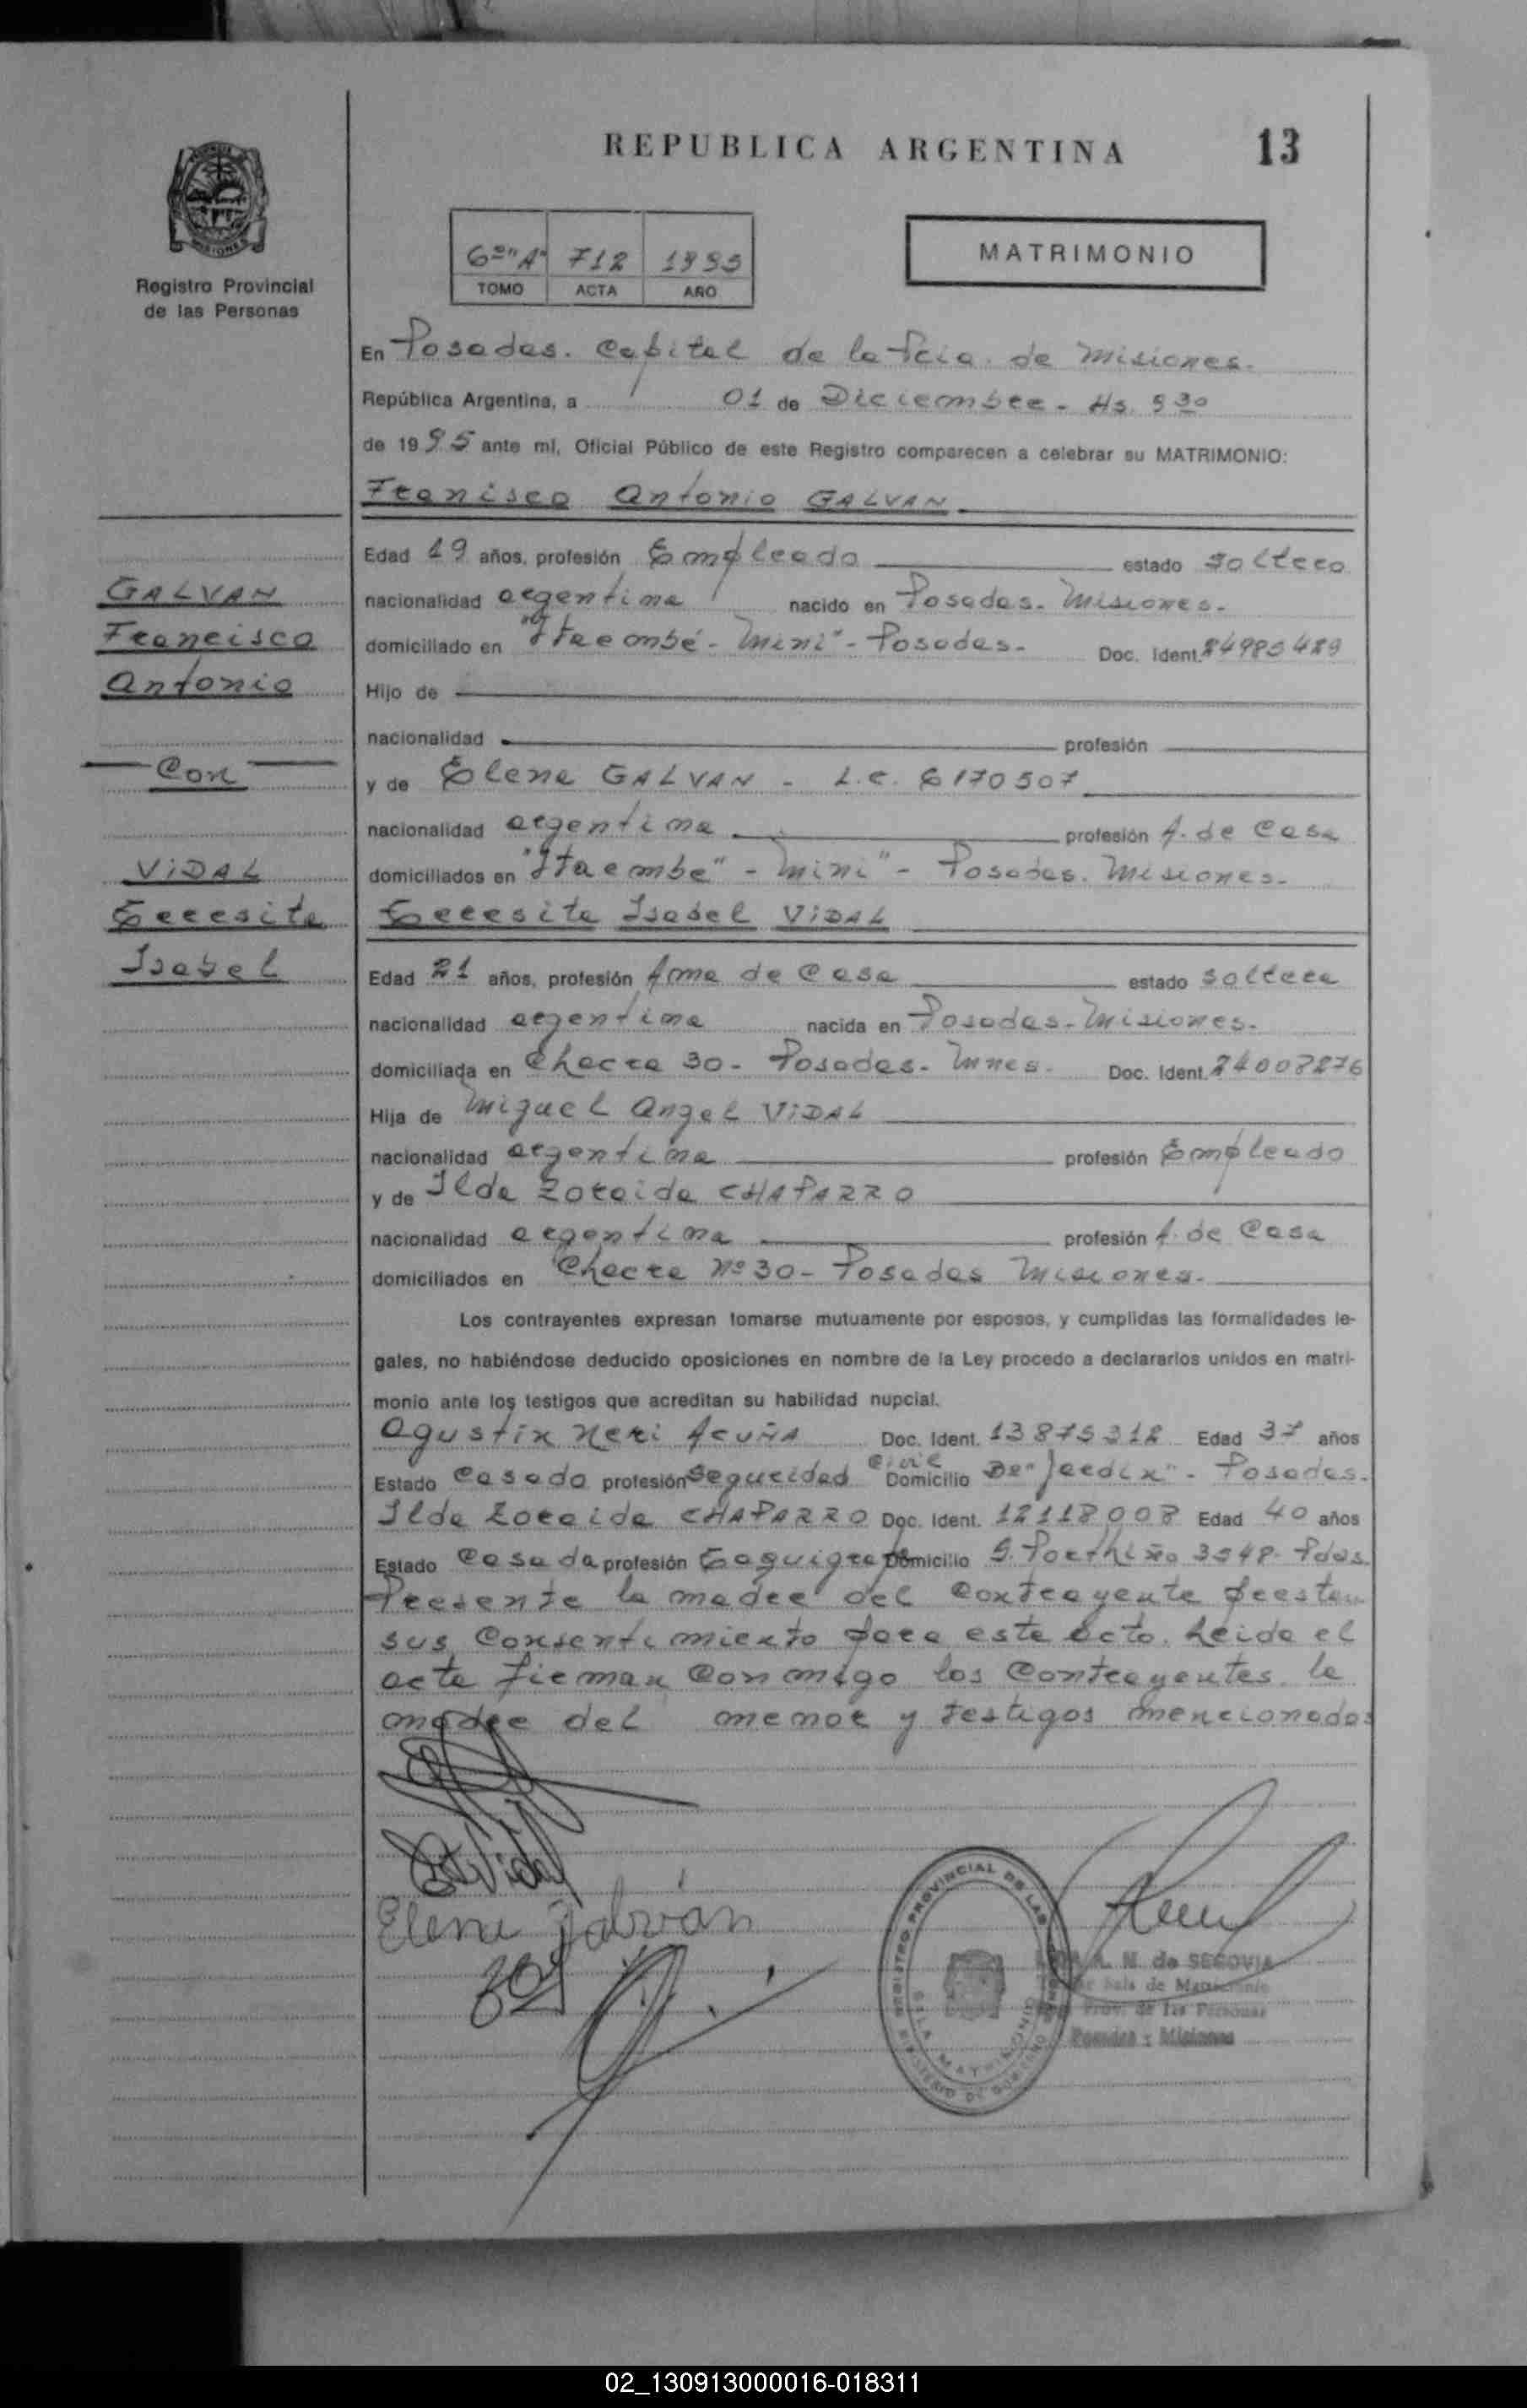 REPUBLICA ARGENTINA
13
MISIONES
Registro Provincial
de las Personas
6º "A" 712 1995
TOMO ACTA AÑO
MATRIMONIO
En Posadas. Capital de la Pcia. de Misiones.
República Argentina, a 01 de Diciembre - Hs. 9 30
de 1995 ante mí, Oficial Público de este Registro comparecen a celebrar su MATRIMONIO:
Francisco Antonio GALVAN
Edad 19 años, profesión Empleado estado soltero
nacionalidad argentina nacido en Posadas - Misiones.
domiciliado en "Itaembé - Mini" - Posadas. Doc. Ident.
Hijo de
nacionalidad profesión
y de Elena GALVAN - L.C. 6170507
nacionalidad argentina profesión A. de Casa
domiciliados en "Itaembe" - Mini" - Posadas. Misiones.
GALVAN
Francisco
Antonio
Con
VIDAL
Isabel
Isabel VIDAL
Edad 21 años, profesión Ama de Casa estado soltera
nacionalidad argentina nacida en Posadas - Misiones.
domiciliada en Chacra 30 - Posadas - Mnes. Doc. Ident. 24008276
Hija de Miguel Angel VIDAL
nacionalidad argentina profesión Empleado
y de Ilda Zoraida CHAPARRO
nacionalidad argentina profesión A. de Casa
domiciliados en Chacra Nº 30 - Posadas Misiones.
Los contrayentes expresan tomarse mutuamente por esposos, y cumplidas las formalidades le-
gales, no habiéndose deducido oposiciones en nombre de la Ley procedo a declararlos unidos en matri-
monio ante los testigos que acreditan su habilidad nupcial.
Agustin Neri ACUÑA Doc. Ident. 13875312 Edad 37 años
Estado Casado profesión Seguridad Civil Domicilio Bº "Jardin" - Posadas.
Ilda Zoraida CHAPARRO Doc. Ident. 12118008 Edad 40 años
Estado Casada profesión Domicilio 3548 - Pdas.
Presente la madre del contrayente presten
sus Consentimiento para este acto. Leida el
acta firman Conmigo los Contrayentes, la
madre del menor y testigos mencionados
Vidal
Elena Galván
REGISTRO PROVINCIAL DE LAS PERSONAS
SALA MATRIMONIO
MINISTERIO DE GOBIERNO
A. N. de SEGOVIA
Sala de Matrimonio
Prov. de las Personas
Posadas - Misiones
02_130913000016-018311